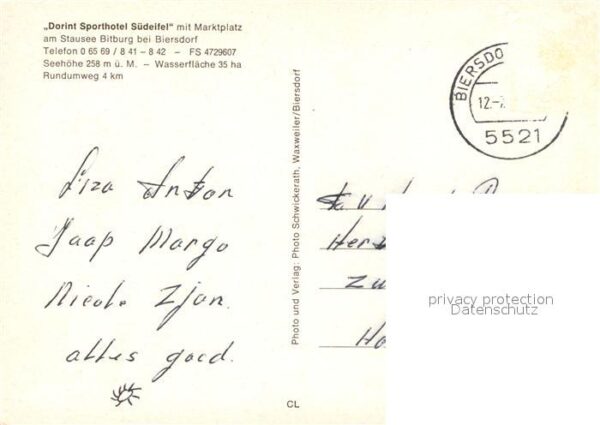 „Dorint Sporthotel Südeifel" mit Marktplatz
am Stausee Bitburg bei Biersdorf
Telefon 0 65 69 / 8 41 – 8 42 – FS 4729607
Seehöhe 258 m ü. M. – Wasserfläche 35 ha
Rundumweg 4 km
Liza Anton
Jaap Margo
Nicole Zjan.
alles goed.
Photo und Verlag: Photo Schwickerath, Waxweiler/Biersdorf
CL
BIERSDO
12.-
5521
Fa
Her
Zu
Ho
privacy protection
Datenschutz